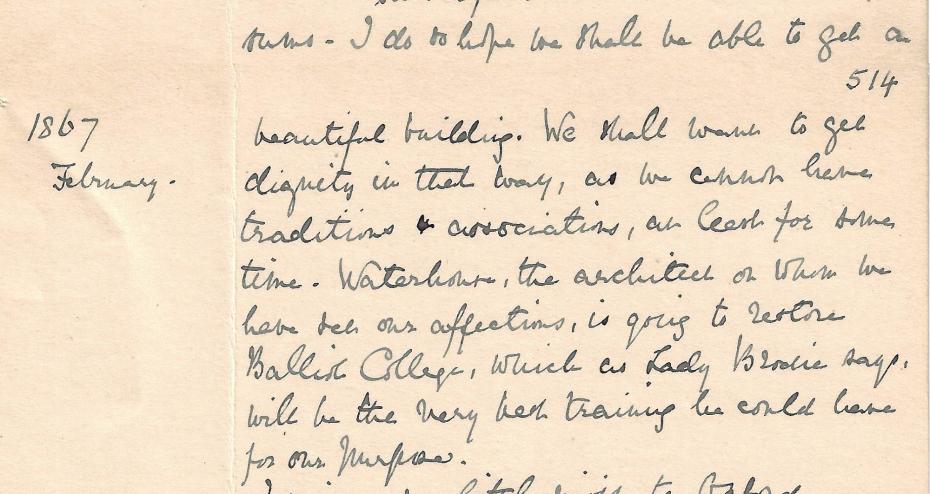 sums - I do so hope we shall be able to get a
514
1867
February.
beautiful building. We shall want to get
dignity in that way, as we cannot have
traditions & associations, at least for some
time. Waterhouse, the architect on whom we
have set our affections, is going to restore
Balliol College, which as Lady Brodie says,
will be the very best training he could have
for our purpose.
visit to Oxford